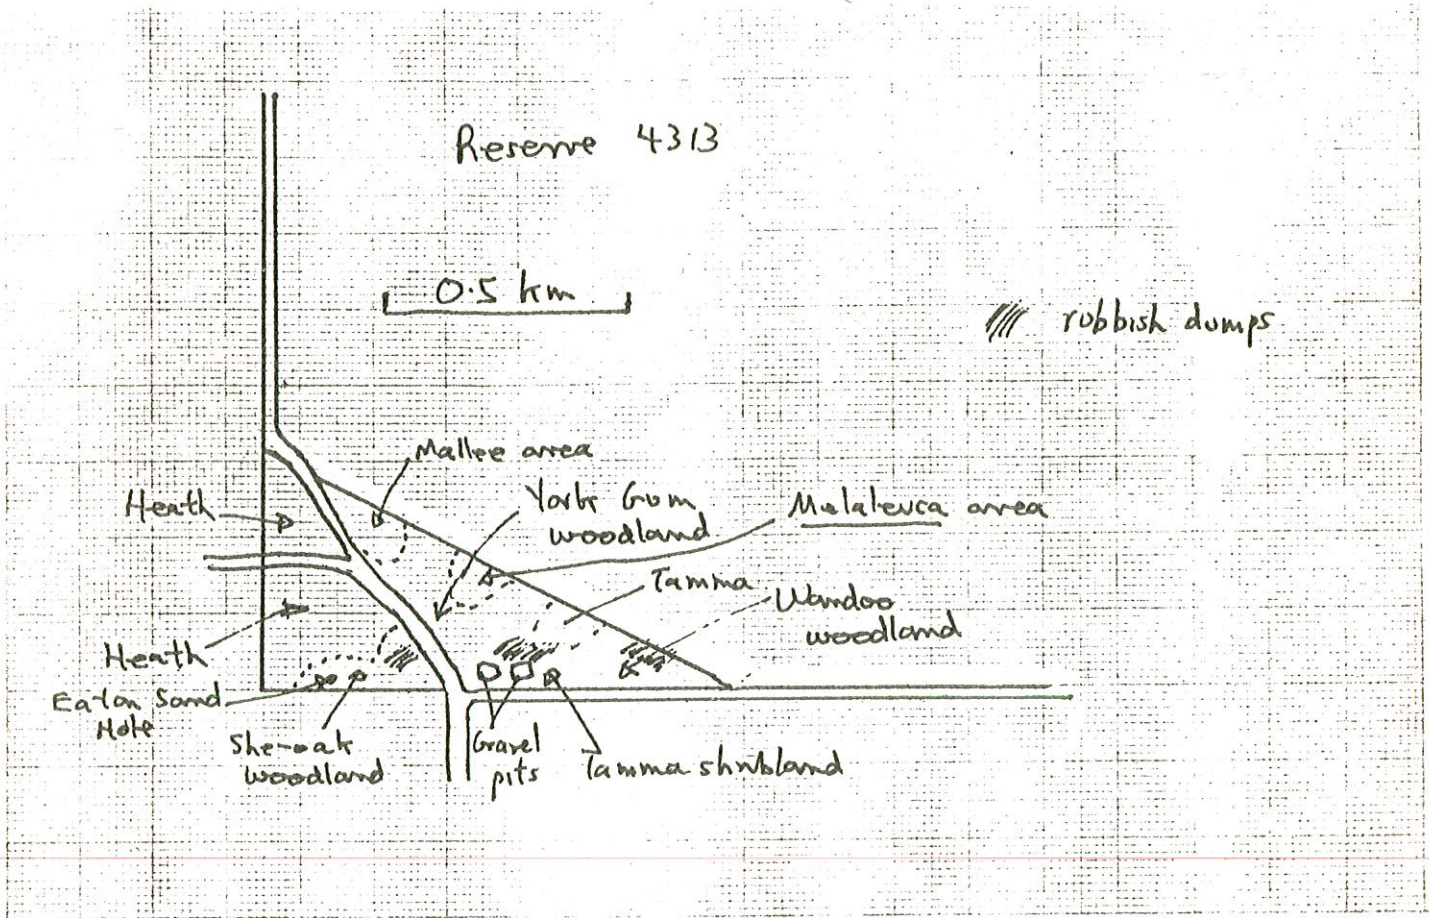 Reserve 4313
0.5 km
rubbish dumps
Mallee area
Heath
York Gum
woodland
Melaleuca area
Tamma
Wandoo
woodland
Heath
Eaton Sand
Hole
She-oak
woodland
Gravel
pits
Tamma shrubland